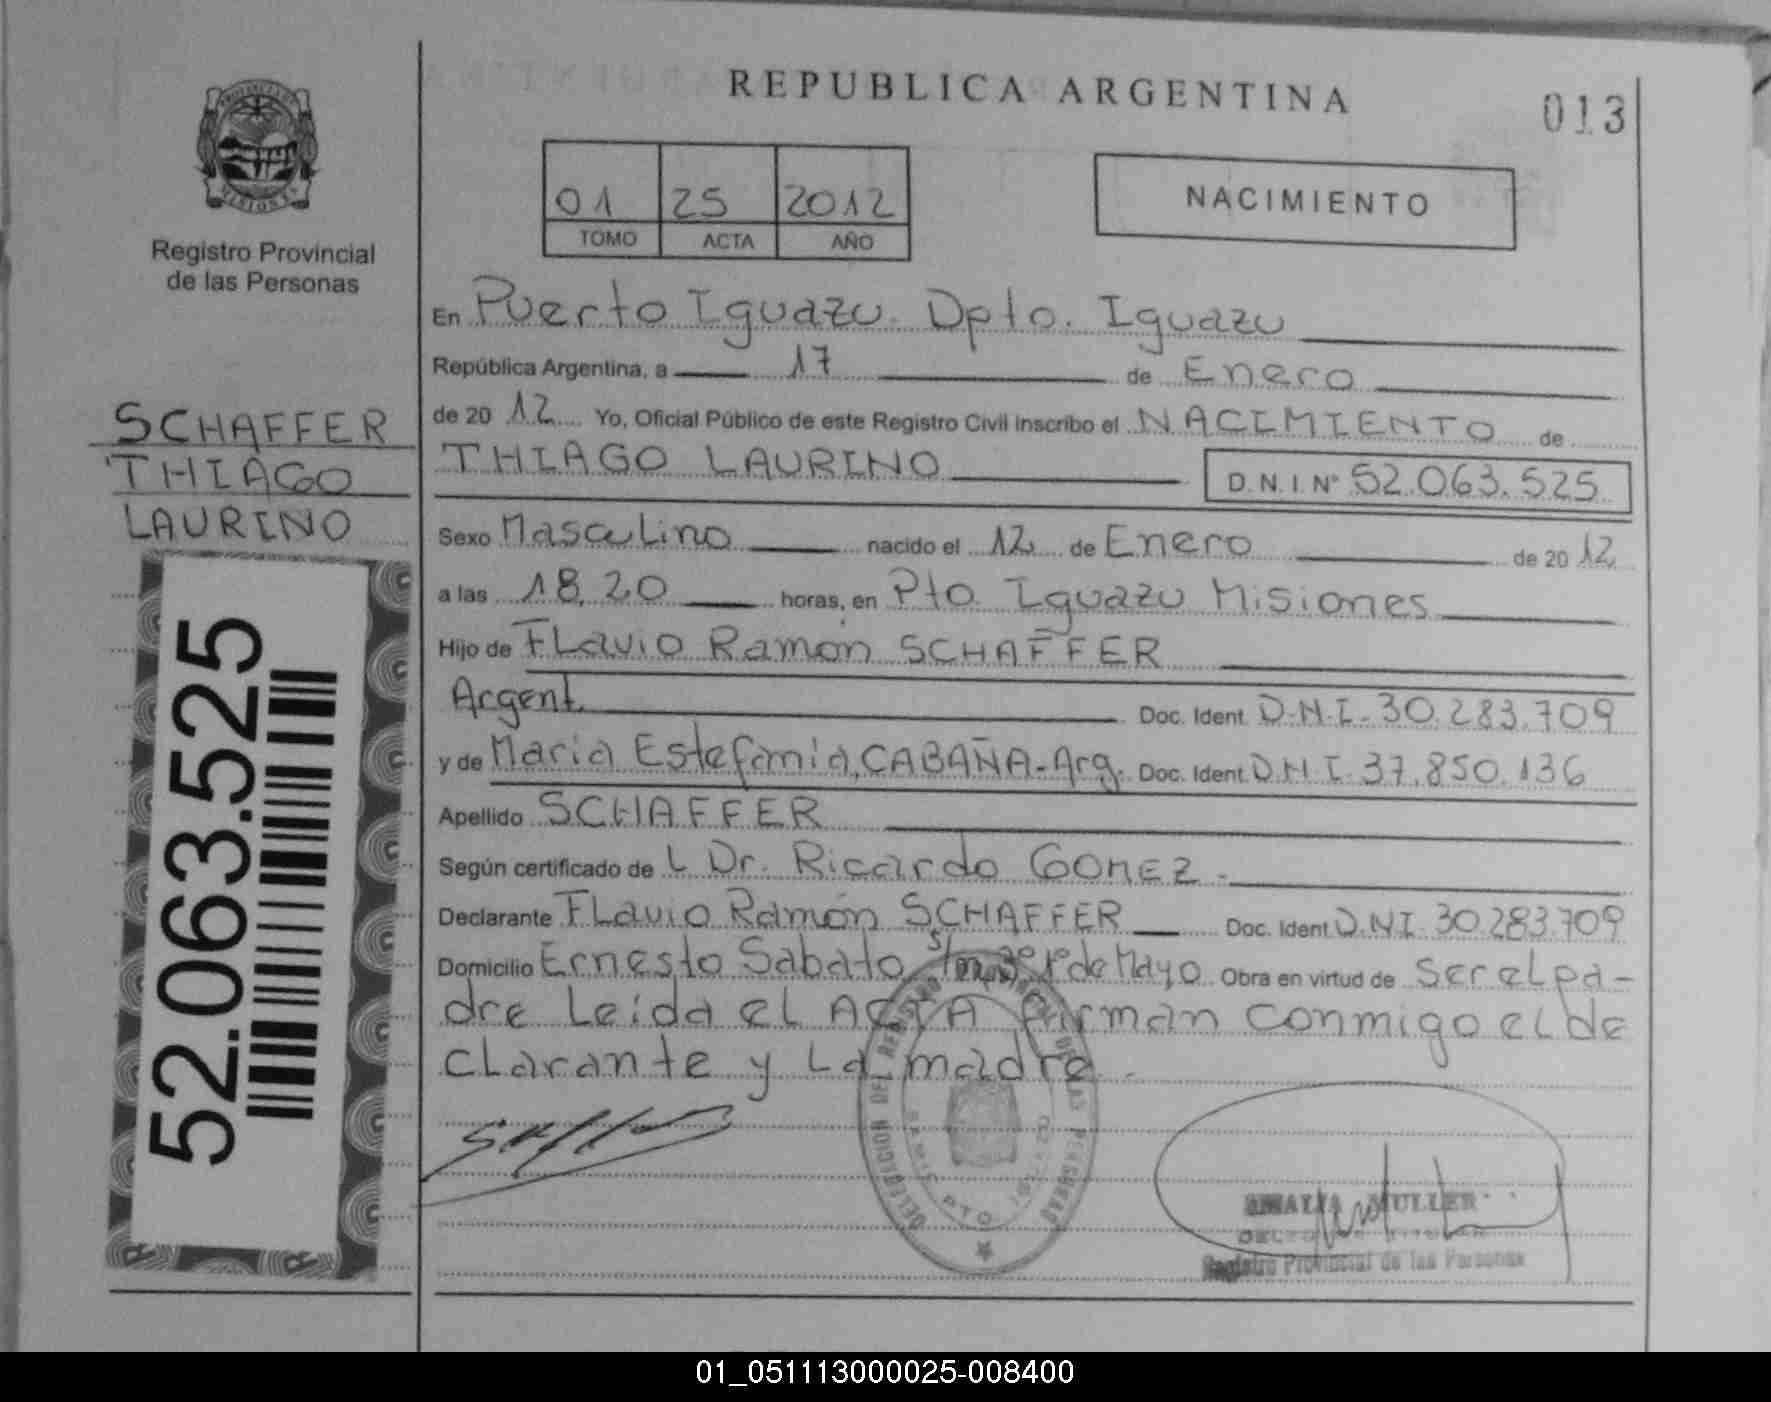 REPUBLICA ARGENTINA
013
PROVINCIA DE MISIONES
Registro Provincial
de las Personas
01 25 2012
TOMO ACTA AÑO
NACIMIENTO
SCHAFFER
THIAGO
LAURINO
52.063.525
En Puerto Iguazu. Dpto. Iguazu
República Argentina, a 17 de Enero
de 20 12 Yo, Oficial Público de este Registro Civil inscribo el NACIMIENTO de
THIAGO LAURINO D.N.I. Nº 52.063.525
Sexo Masculino nacido el 12 de Enero de 20 12
a las 18,20 horas, en Pto. Iguazu Misiones
Hijo de FLavio Ramón SCHAFFER
Argent. Doc. Ident. D.N.I. 30.283.709
y de Maria Estefania, CABAÑA-Arg. Doc. Ident. D.N.I. 37.850.136
Apellido SCHAFFER
Según certificado de L Dr. Ricardo GOMEZ.
Declarante FLavio Ramón SCHAFFER Doc. Ident. D.N.I. 30.283.709
Domicilio Ernesto Sabato s/nº Bº 1º de Mayo Obra en virtud de ser el pa-
dre Leida el ACTA firman conmigo el de
clarante y La madre.
DELEGACION DEL REGISTRO PROVINCIAL DE LAS PERSONAS
PTO. IGUAZU
AMALIA MULLER
DELEGADA TITULAR
Registro Provincial de las Personas
01_051113000025-008400